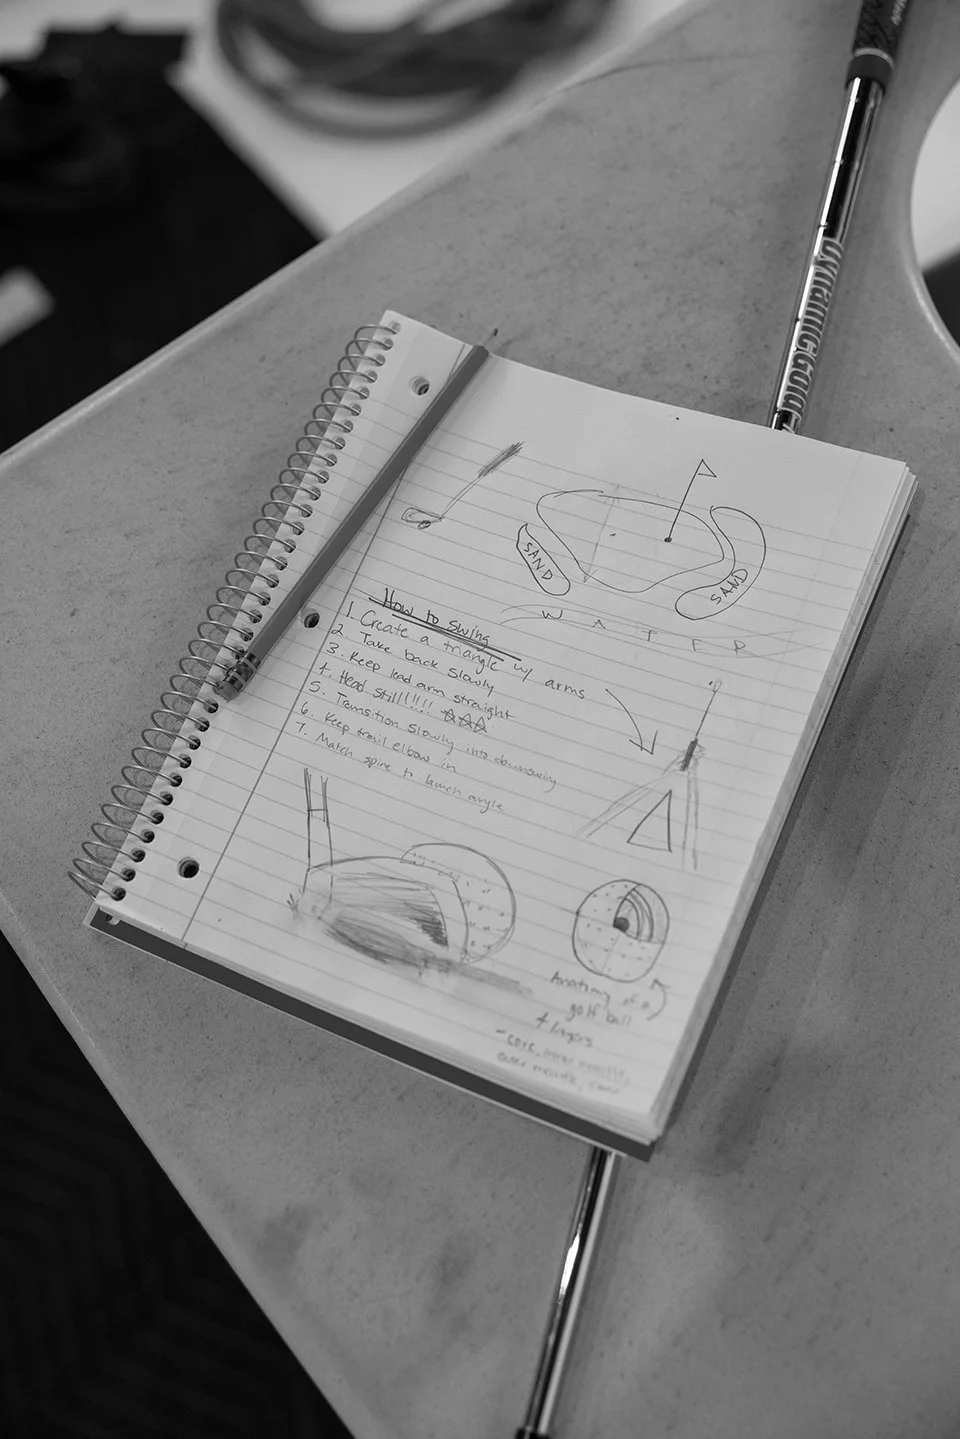 Dynamic Gold
SAND
SAND
WATER
How to swing
1. Create a triangle w/ arms
2. Take back slowly
3. Keep lead arm straight
4. Head still!!!!! ☆☆☆
5. Transition slowly into downswing
6. Keep trail elbow in
7. Match spine to launch angle
Anatomy of a
golf ball
4 layers
- core, inner mantle,
outer mantle, cover